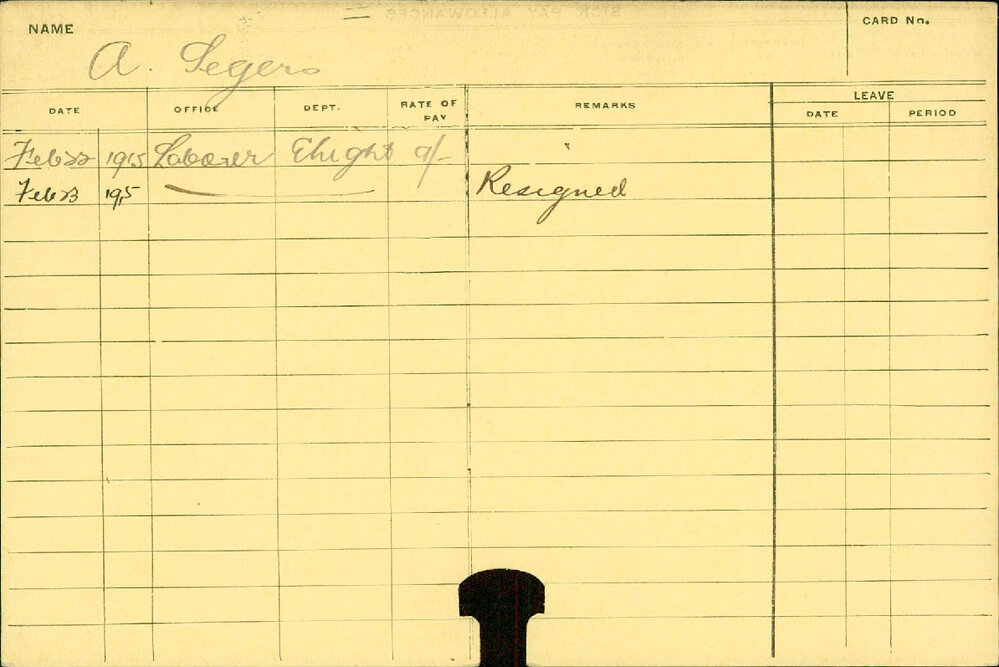 NAME
CARD No.
A. Segers
DATE OFFICE DEPT. RATE OF PAY REMARKS LEAVE
DATE PERIOD
Feb 22 1915 Laborer Elight 9/-
Feb 23 1915 Resigned